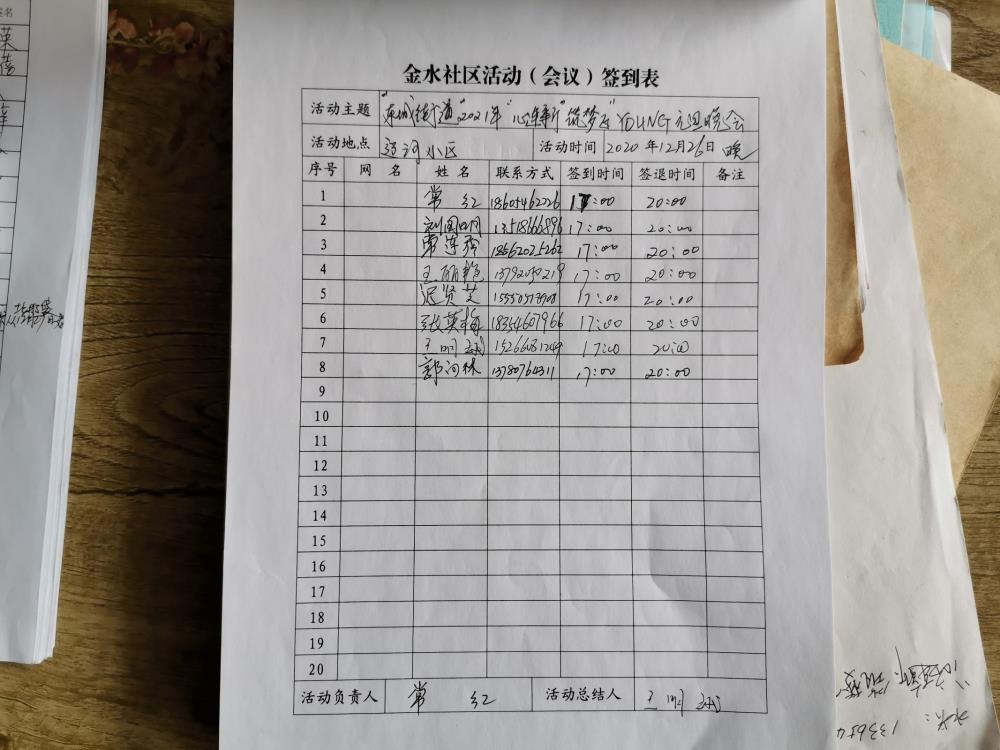 金水社区活动（会议）签到表
活动主题 "东城街道"2021年"心连新"筑梦 YOUNG 元旦晚会
活动地点 运河小区 活动时间 2020年12月26日 晚
序号 网名 姓名 联系方式 签到时间 签退时间 备注
1 常红 18605462226 17:00 20:00
2 刘国明 13518666896 17:00 20:00
3 常连玲 18562025262 17:00 20:00
4 王丽艳 13792050219 17:00 20:00
5 迟贤芝 17:00 20:00
6 张英梅 18354607966 17:00 20:00
7 王明 15266081249 17:00 20:00
8 郭河林 13780764311 17:00 20:00
9
10
11
12
13
14
15
16
17
18
19
20
活动负责人 常红 活动总结人 王明